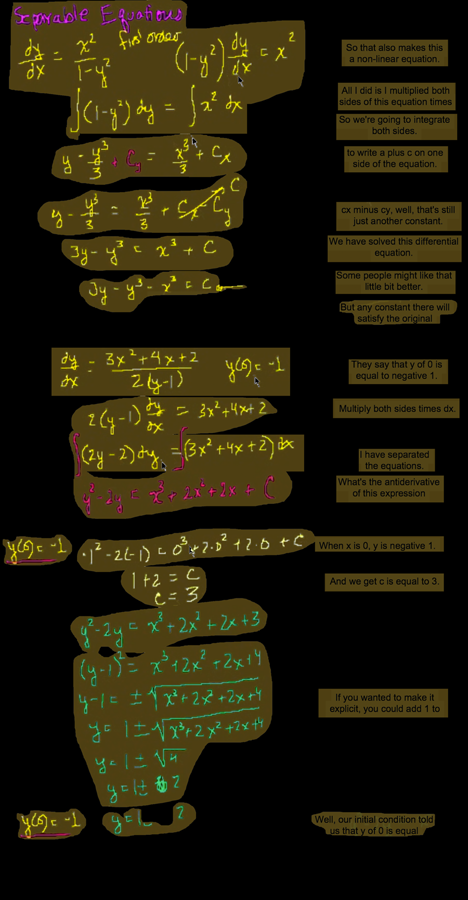 Separable Equations
dy/dx = x²/(1-y²) first order (1-y²) dy/dx = x²
So that also makes this
a non-linear equation.
∫(1-y²) dy = ∫ x² dx
All I did is I multiplied both
sides of this equation times
So we're going to integrate
both sides.
y - y³/3 + Cy = x³/3 + Cx
to write a plus c on one
side of the equation.
y - y³/3 = x³/3 + Cx - Cy C
cx minus cy, well, that's still
just another constant.
3y - y³ = x³ + C
We have solved this differential
equation.
3y - y³ - x³ = C
Some people might like that
little bit better.
But any constant there will
satisfy the original
dy/dx = (3x² + 4x + 2)/(2(y-1)) y(0) = -1
They say that y of 0 is
equal to negative 1.
2(y-1) dy/dx = 3x² + 4x + 2
Multiply both sides times dx.
∫(2y-2) dy = ∫(3x² + 4x + 2) dx
I have separated
the equations.
y² - 2y = x³ + 2x² + 2x + C
What's the antiderivative
of this expression
y(0) = -1 -1² - 2(-1) = 0³ + 2·0² + 2·0 + C
When x is 0, y is negative 1.
1 + 2 = C
C = 3
And we get c is equal to 3.
y² - 2y = x³ + 2x² + 2x + 3
(y-1)² = x³ + 2x² + 2x + 4
y - 1 = ± √(x³ + 2x² + 2x + 4)
If you wanted to make it
explicit, you could add 1 to
y = 1 ± √(x³ + 2x² + 2x + 4)
y = 1 ± √4
y = 1 ± 2
y(0) = -1 y = 1 - 2
Well, our initial condition told
us that y of 0 is equal